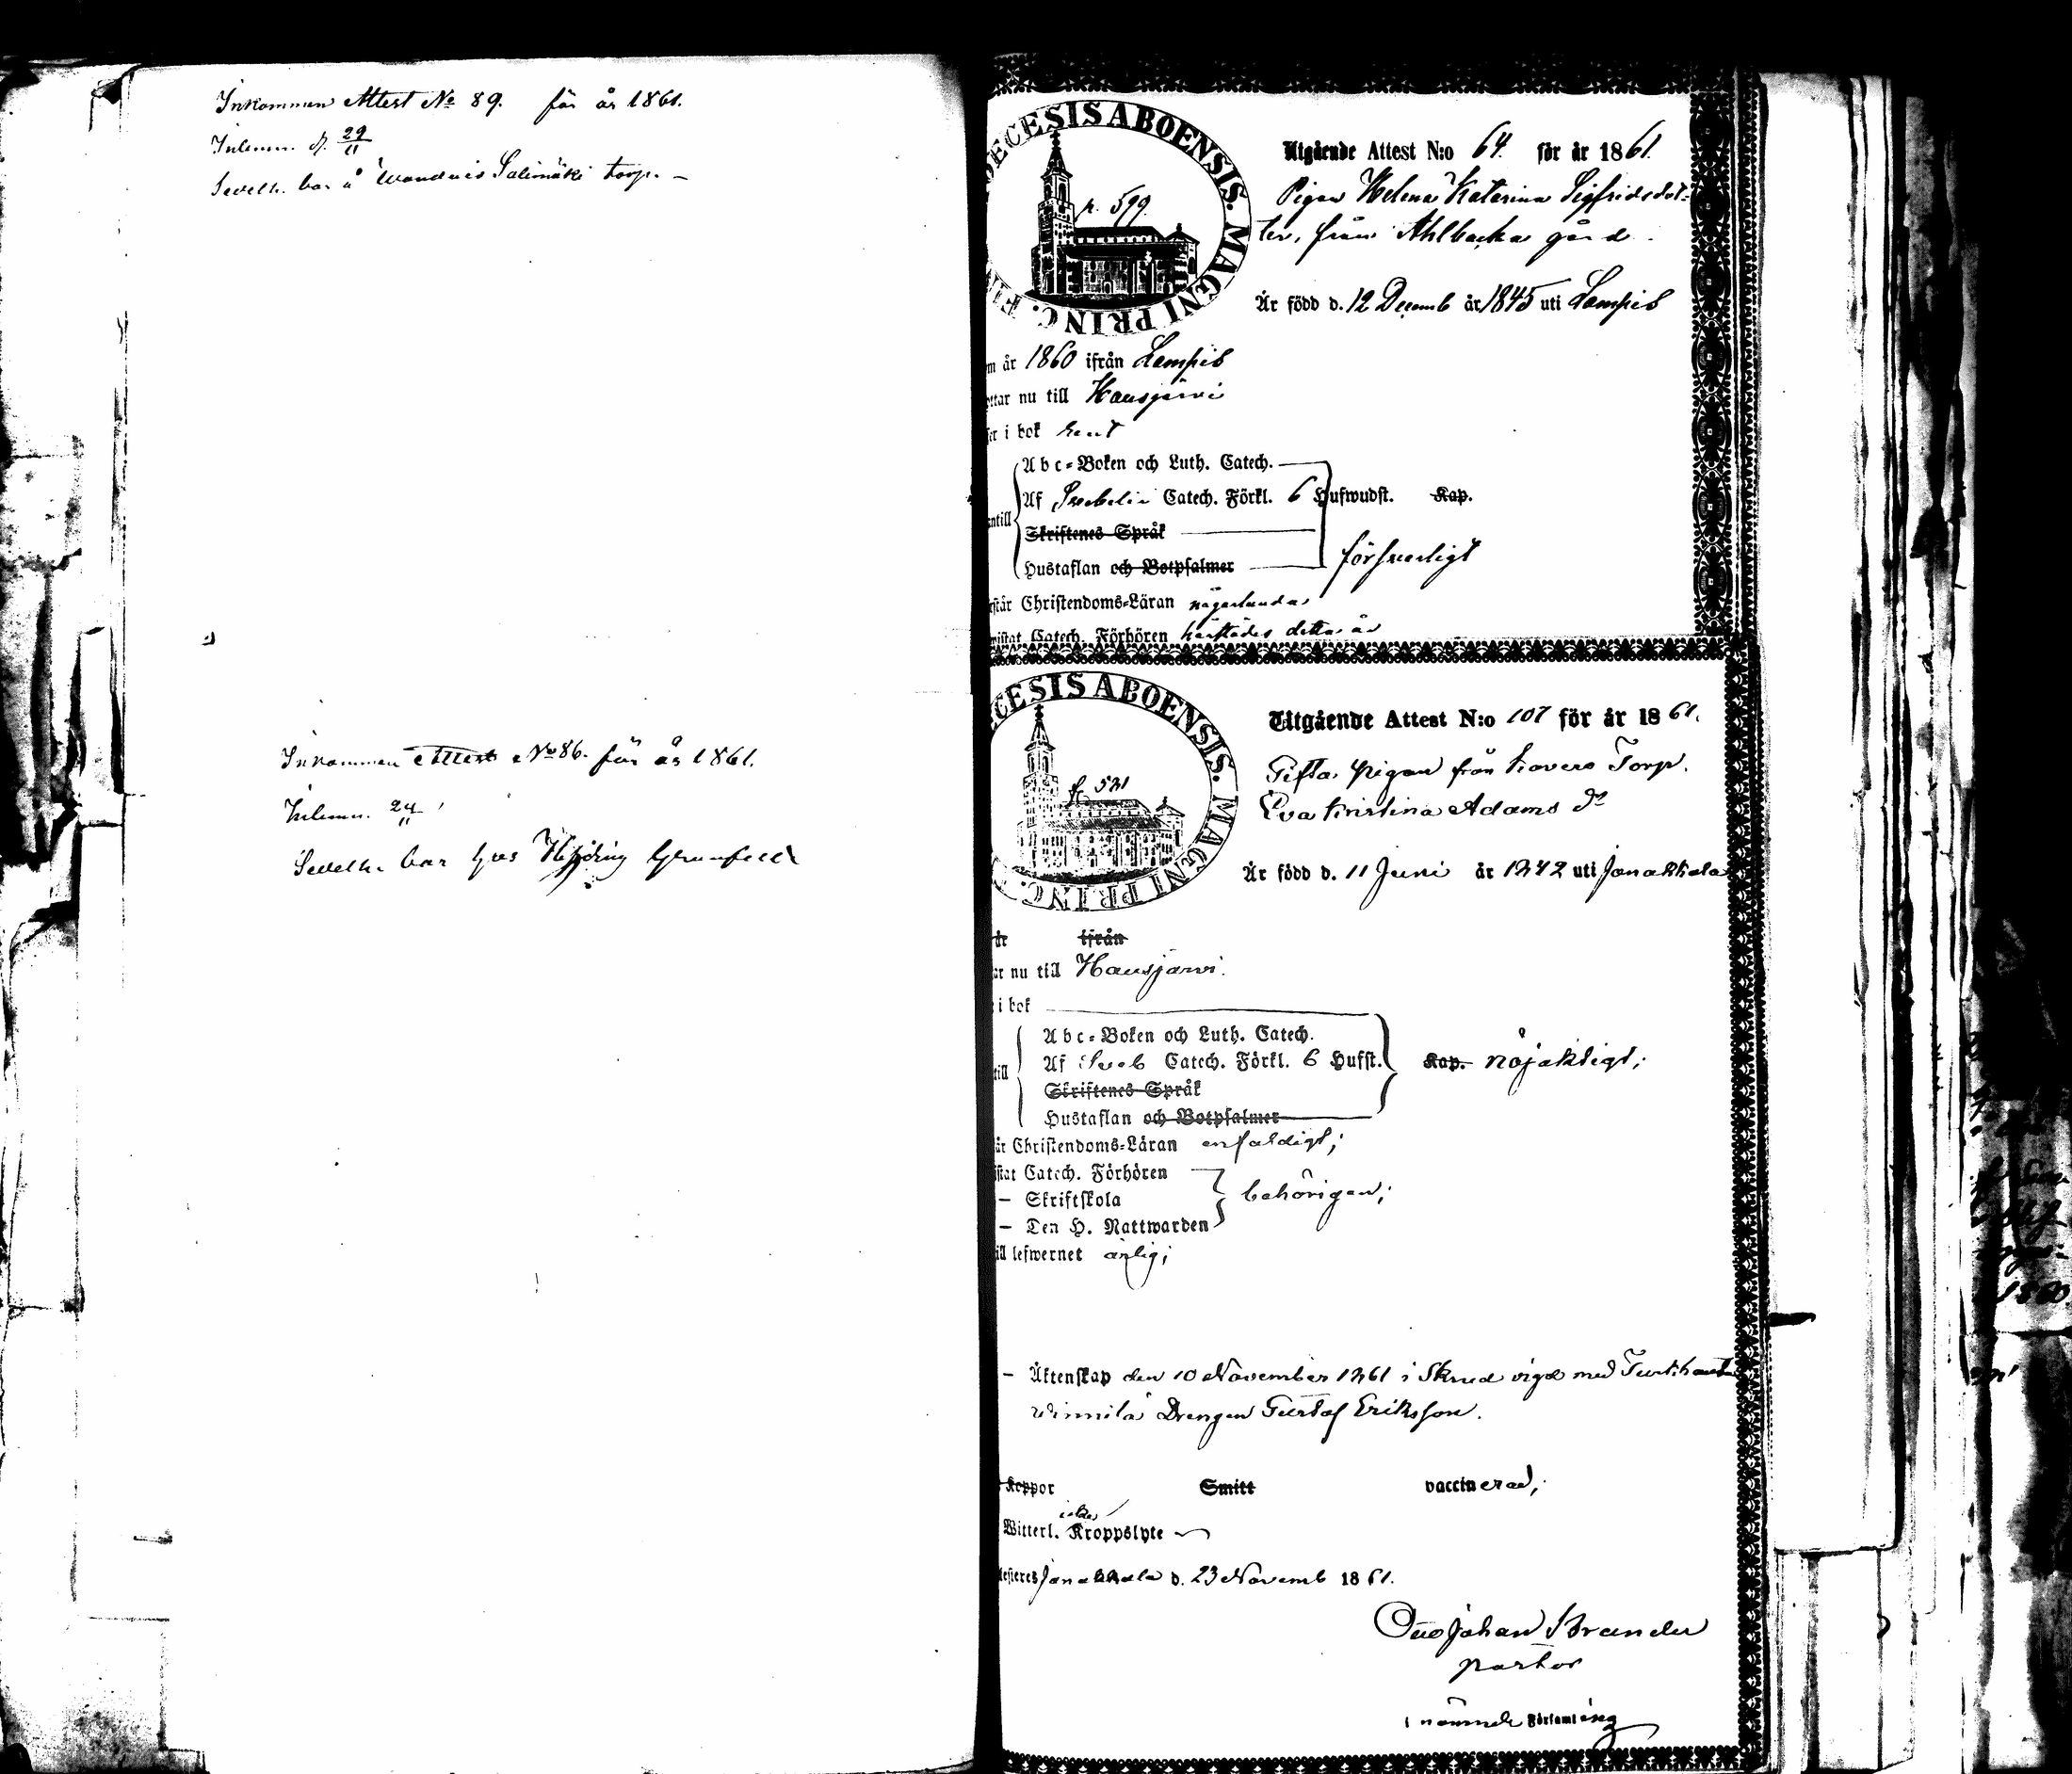 Inkommen Attest No 89. för år 1861.
Inlemn. d. 29/11
bor å torp. –
Inkommen Attest No 86. för år 1861.
Inlemn. 24/11
bor hos
DECESIS ABOENSIS. MAGNI PRINC. FI
p. 599.
Utgående Attest N:o 64. för år 1861.
Pigan Helena Katarina Sigfridsdot-
ter, från Ahlbacka gård.
Är född d. 12 Decemb år 1845 uti Lampis
m år 1860 ifrån Lampis
ttar nu till Hausjärvi
ser i bok rent
Abc-Boken och Luth. Catech.
Af Svebelii Catech. Förkl. 6 Hufwudst. Kap.
ntill
Skriftenes Språk
Hustaflan och Botpsalmer försvarligt
rstår Christendoms-Läran någorlunda
mistat Catech. Förhören härstädes detta år
CESIS ABOENSIS. MAGNI PRINC.
f. 531
Utgående Attest N:o 107 för år 1861.
Gifta pigan från Torp.
Eva Kristina Adams dr
Är född d. 11 Juni år 1842 uti Janakkala
år ifrån
ar nu till Hausjärvi.
i bok
Abc-Boken och Luth. Catech.
till
Af Sveb Catech. Förkl. 6 Hufst. Kap. nöjaktigt;
Skriftenes Språk
Hustaflan och Botpsalmer
är Christendoms-Läran enfaldigt;
istat Catech. Förhören
– Skriftskola behörigen;
– Den H. Nattwarden
ill lefwernet ärlig;
– Äktenskap den 10 November 1861 i Skrud vigd med
Drengen Gustaf Eriksson.
Koppor Smitt vaccinerad;
Witterl. Kroppslyte
testeres Janakkala d. 23 Novemb 1861.
Otto Johan Brander
pastor
i nämnde Församling
1860.